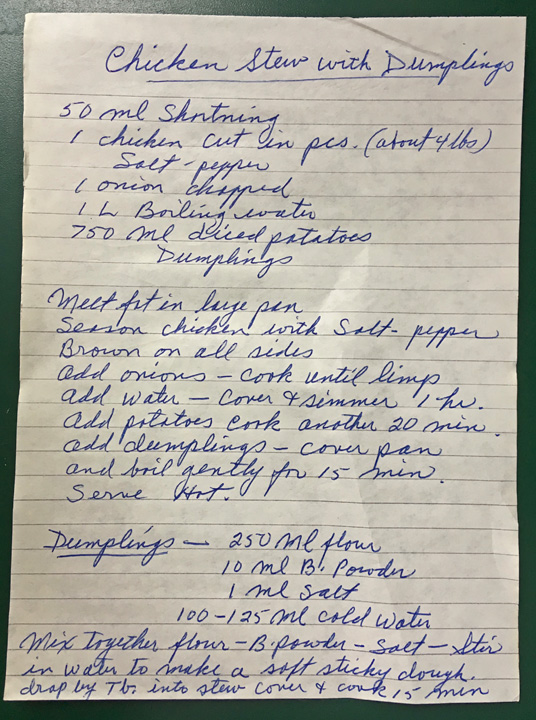 Chicken Stew with Dumplings
50 ml Shortning
1 chicken cut in pcs. (about 4 lbs)
Salt - pepper
1 onion chopped
1 L Boiling water
750 ml diced potatoes
Dumplings
Melt fat in large pan
Season chicken with Salt - pepper
Brown on all sides
add onions - cook until limp
add water - cover & simmer 1 hr.
add potatoes cook another 20 min.
add dumplings - cover pan
and boil gently for 15 min.
Serve Hot.
Dumplings - 250 ml flour
10 ml B. Powder
1 ml Salt
100-125 ml cold water
Mix together flour - B. powder - Salt - Stir
in water to make a soft sticky dough.
drop by Tb. into stew cover & cook 15 min